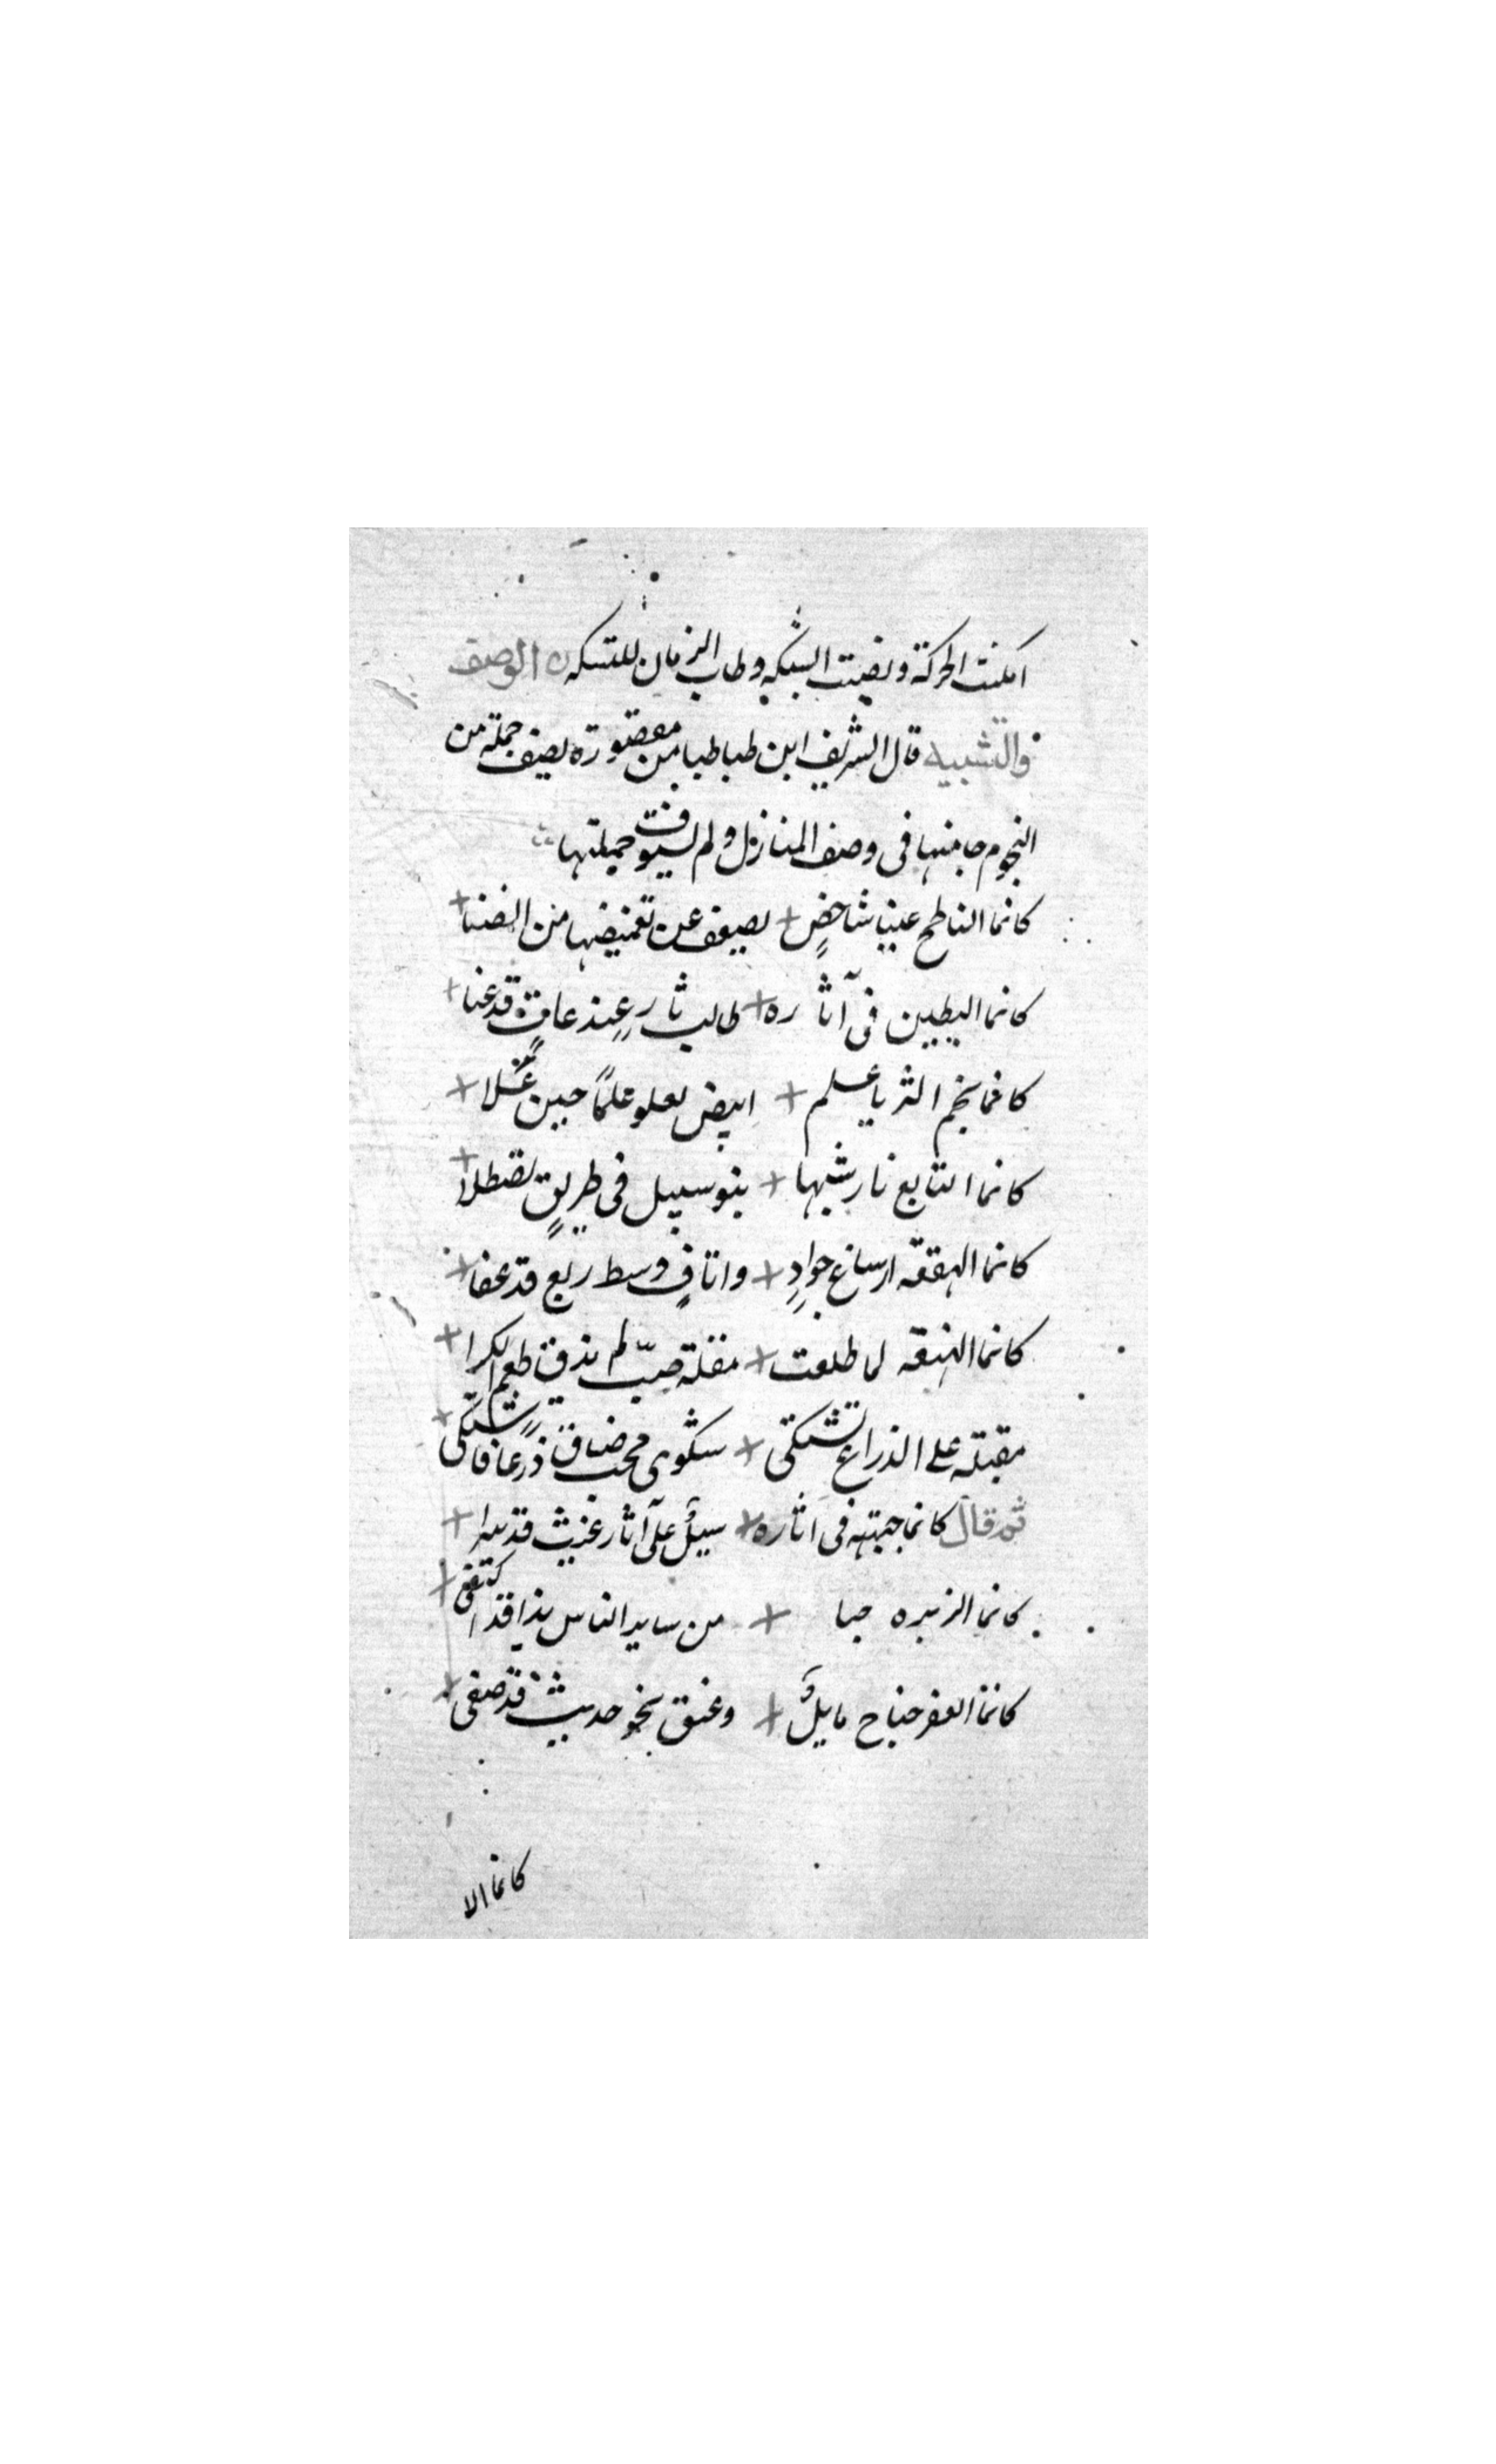 امكنت الحركة ونصبت الشبكه وطاب الزمان للتسكه ه الوصف
والتشبيه قال الشريف ابن طباطبا من مقصورة يصف جملة من
النجوم جا منها فى وصف المنازل ولم يستوف جملتها
كانما الناطح عينا شاخصٍ + يصعف عن تغميضها من الضنا +
كانما البطين فى آثاره + طالب ثار عند عاتٍ قد عنا +
كانما نجم الثريا علم + ابيض يعلو علمًا حين علا +
كانما التابع نار شبها + بنو سبيل فى طريقٍ تصطلا +
كانما الهقعه ارساغ جوادٍ + واثافٍ وسط ربع قد عفا +
كانما الهنعه لما طلعت + مقلة صبّ لم يذق طعم الكرا +
مقبلة على الذراع تشتكى + شكوى محب ضاق ذرعًا فاشتكى +
ثم قال كانما جبهته فى اثاره + سيلٌ على آثار غيث قد سرا +
كانما الزبره حبا + من ساير الناس بذا قد اكتفى +
كانما الغفر جناح مايلٌ + وعنق نحو حديث قد صغى +
كانما الا